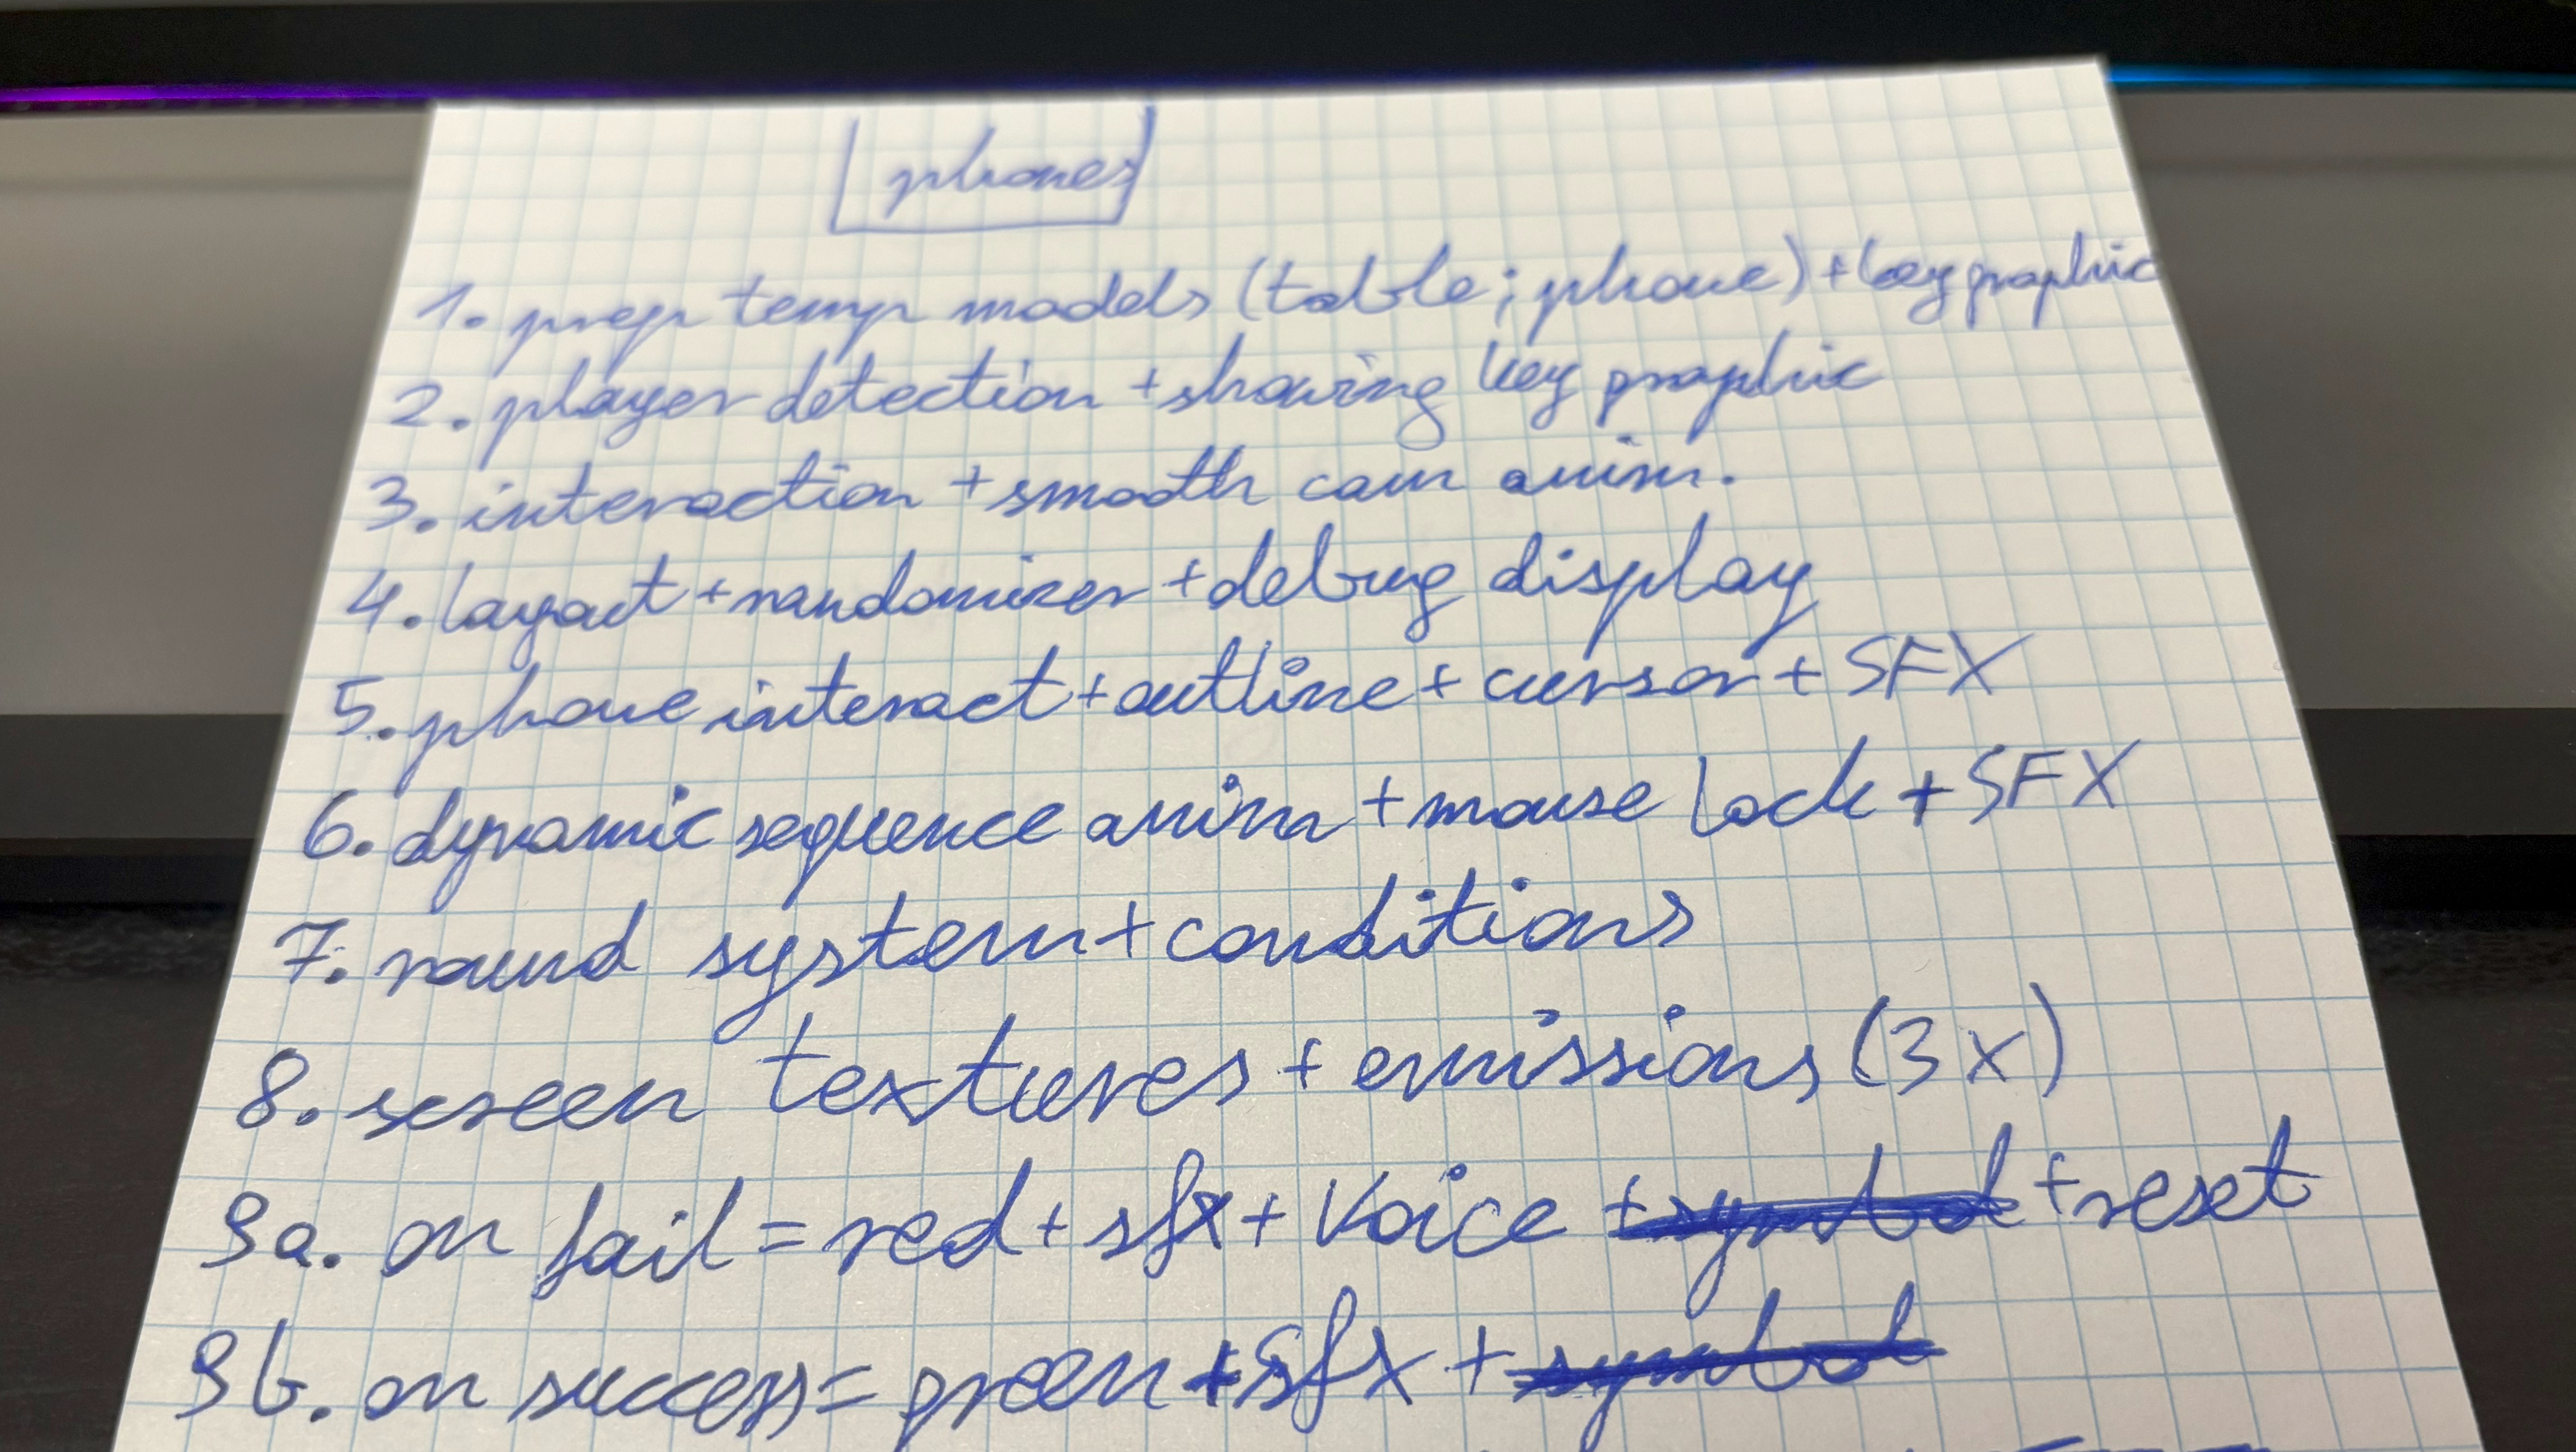 phones
1. prep temp models (table; phone) + key graphic
2. player detection + showing key graphic
3. interaction + smooth cam anim.
4. layout + randomizer + debug display
5. phone interact + outline + cursor + SFX
6. dynamic sequence anim + mouse lock + SFX
7. round system + conditions
8. screen textures + emissions (3x)
9a. on fail = red + sfx + Voice + symbol + reset
9b. on success = green + sfx + symbol